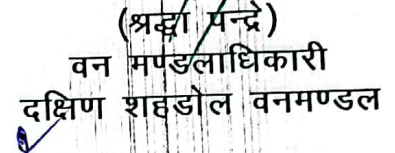 (श्रद्धा पन्द्रे)
वन मण्डलाधिकारी
दक्षिण शहडोल वनमण्डल